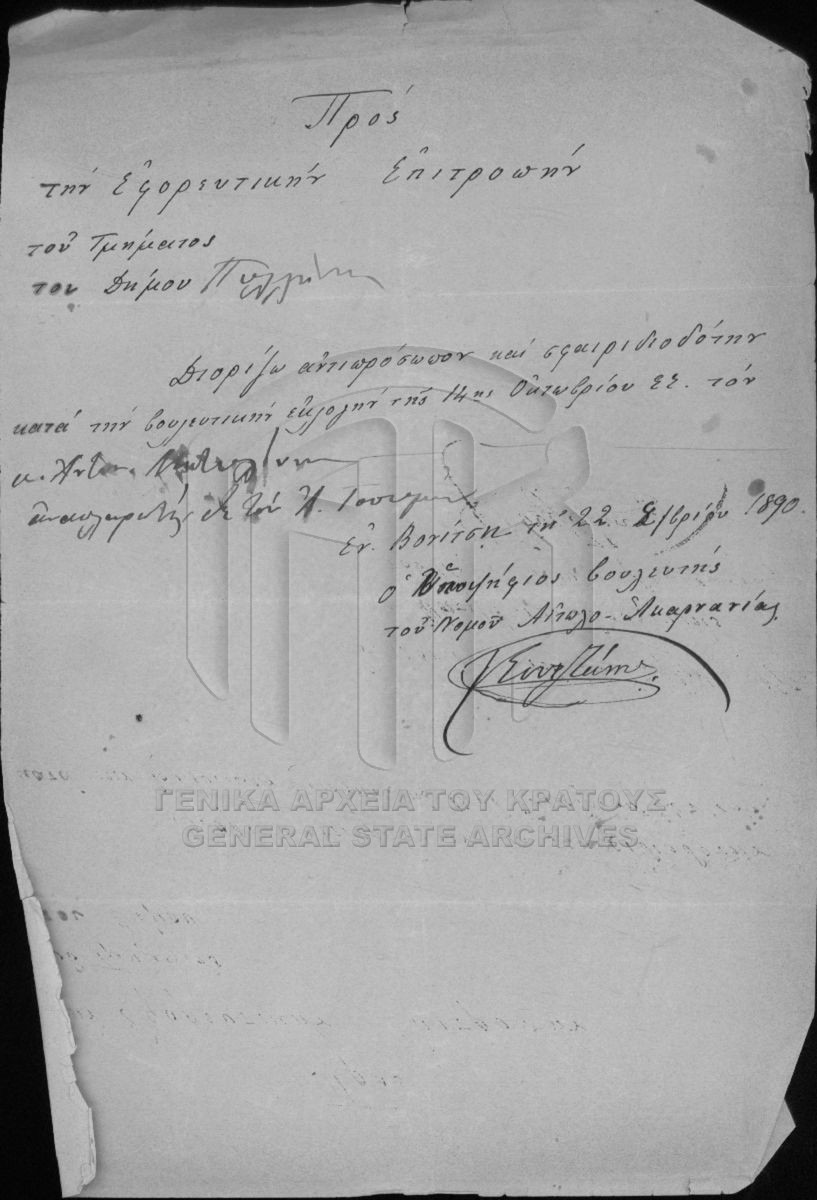 Πρός
τήν Εφορευτικήν Επιτροπήν
τοῦ Τμήματος
του Δήμου
Διορίζω αντιπρόσωπον καί σφαιριδιοδότην
κατά τήν βουλευτικήν εκλογήν τῆς 14ης Οκτωβρίου ΕΕ. τόν
κ. Αντων.
αναπληρωτής δε τόν Α.
Εν Βονίτση τη 22 7βρίου 1890.
ο Υποψήφιος βουλευτής
τοῦ Νομοῦ Αιτωλο-Ακαρνανίας
ΓΕΝΙΚΑ ΑΡΧΕΙΑ ΤΟΥ ΚΡΑΤΟΥΣ
GENERAL STATE ARCHIVES